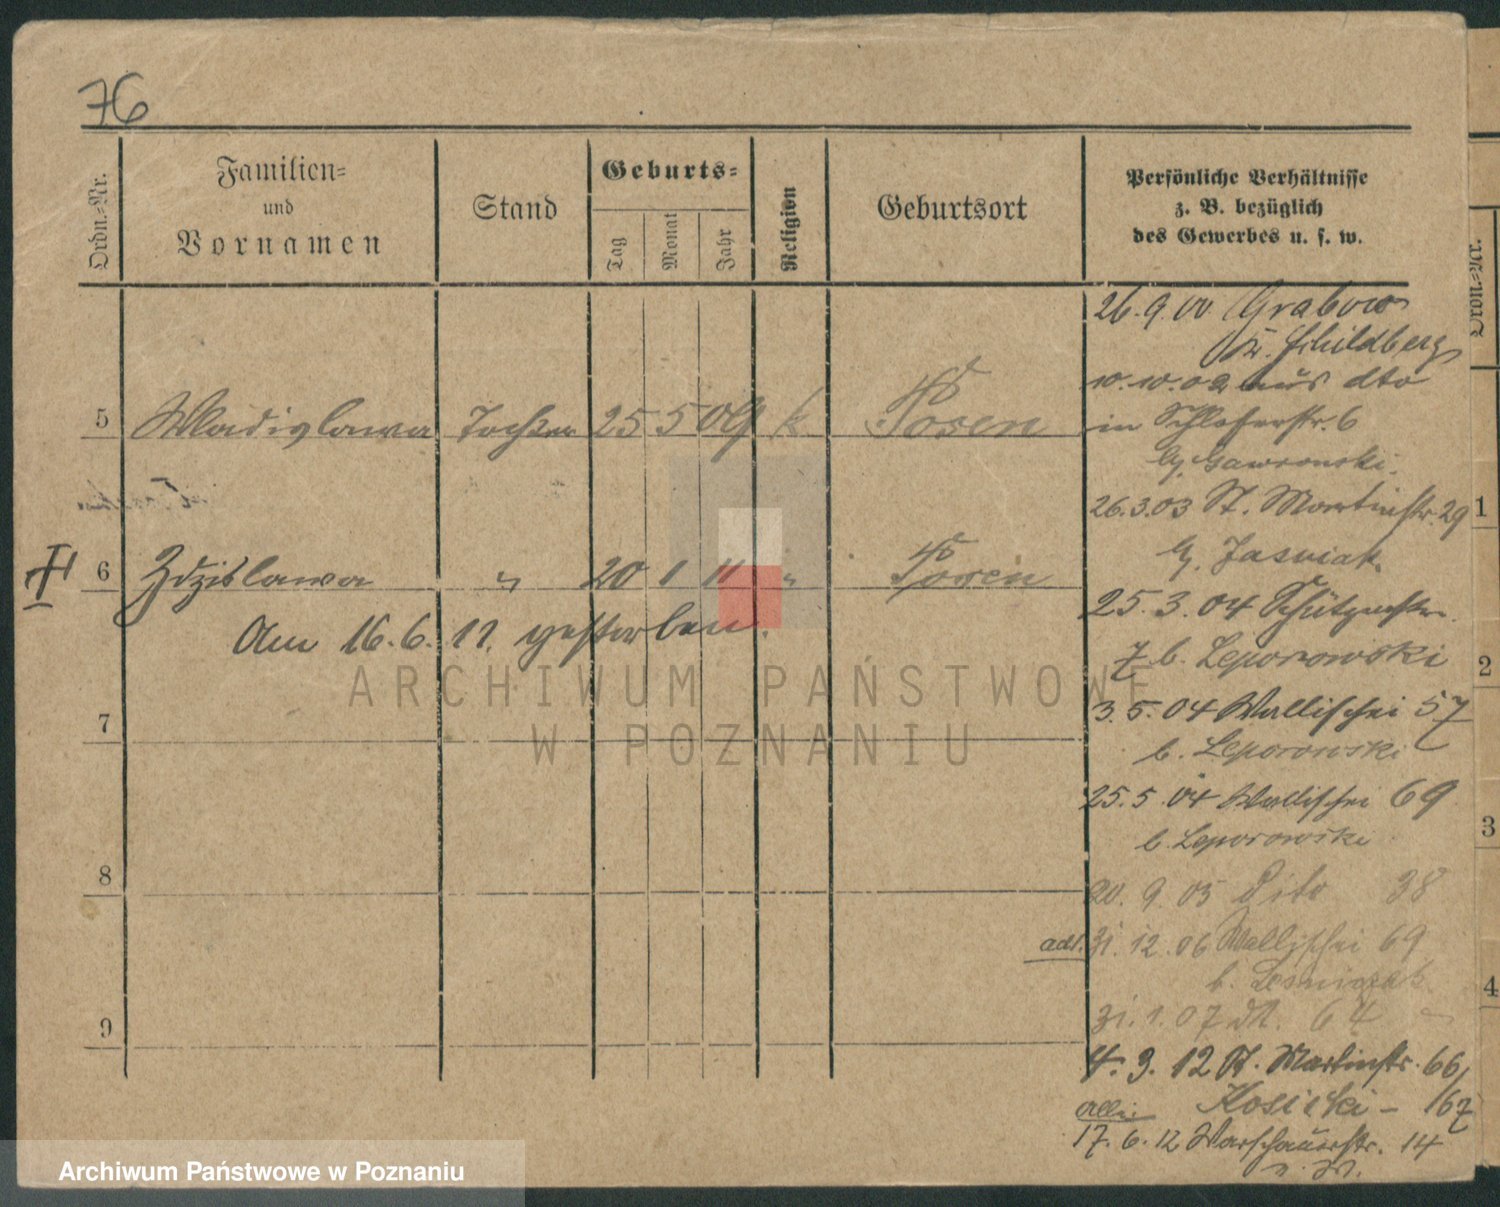 76
Ordn.=Nr.
Familien=
und
Vornamen
Stand
Geburts=
Tag
Monat
Jahr
Religion
Geburtsort
Persönliche Verhältnisse
z. B. bezüglich
des Gewerbes u. s. w.
5 Wladislawa Tochter 25 5 09 k Posen
6 Zdzislawa " 20 1 11 " Posen
Am 16.6.11. gestorben.
7
8
9
26.9.00 Grabow
Kr. Schildberg
10.10.02 aus dto
in Schlosserstr. 6
b. Gawronski.
26.3.03 St. Martinstr. 29
b. Jasniak.
25.3.04 Schützenstr.
7 b. Leporowski
3.5.04 Wallischei 57
b. Leporowski
25.5.04 Wallischei 69
b. Leporowski
20.9.05 Dito 38
31.12.06 Wallischei 69
b. Lesniczak
31.1.07 64
4.3.12 St. Martinstr. 66/67
Kosicki
17.6.12 Warschauerstr. 14
Ordn.=Nr.
1
2
3
4
ARCHIWUM PAŃSTWOWE
W POZNANIU
Archiwum Państwowe w Poznaniu